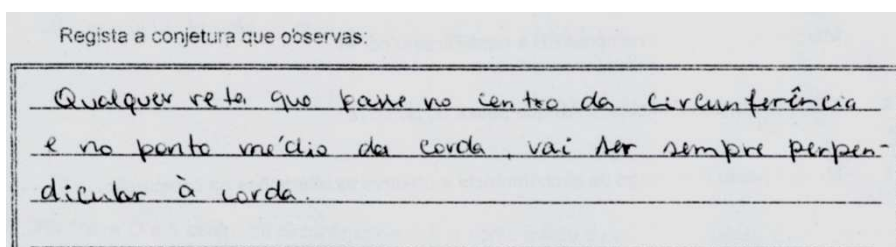 Regista a conjetura que observas:
Qualquer reta que passe no centro da circunferência
e no ponto médio da corda, vai ser sempre perpen-
dicular à corda.